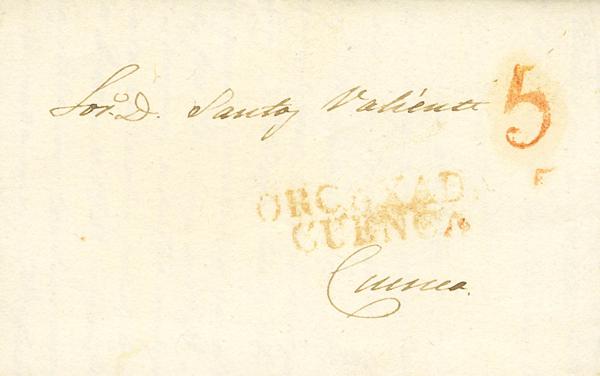 Sor. D. Santos Valiente
5
ORCAXADA
CUENCA
Cuenca.